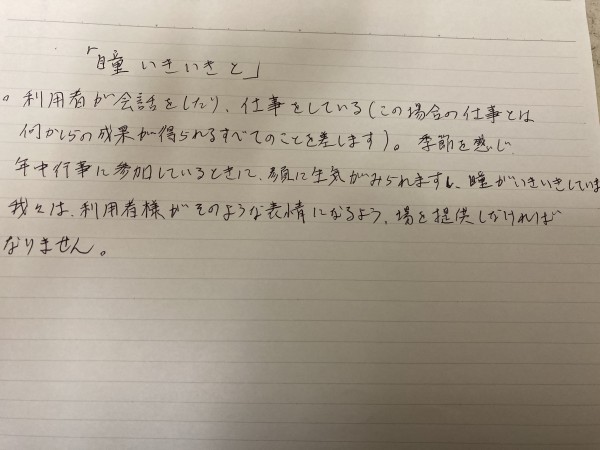 「瞳いきいきと」
。利用者が会話をしたり、仕事をしている(この場合の仕事とは
何からの成果が得られるすべてのことを差します)。季節を感じ
年中行事に参加しているときに、顔に生気がみられますし、瞳がいきいきしていま
我々は、利用者様がそのような表情になるよう、場を提供しなければ
なりません。